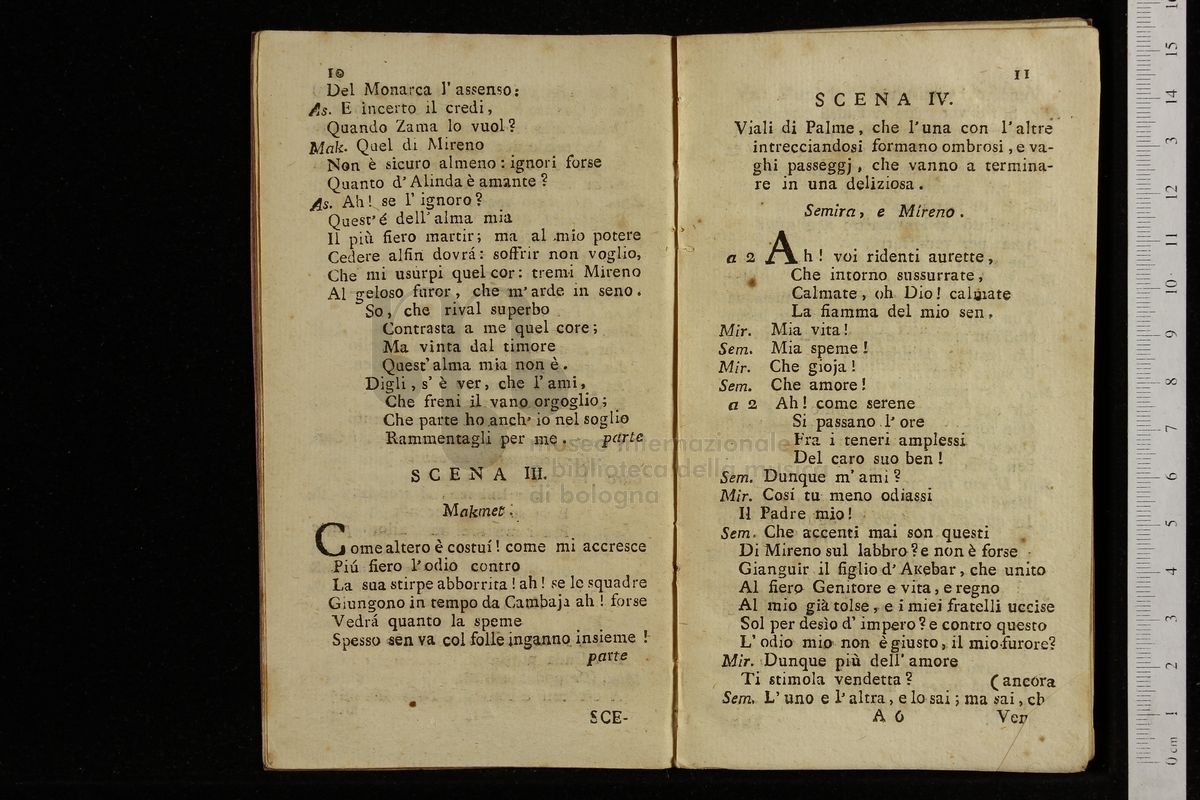 10
Del Monarca l' assenso:
As. E incerto il credi,
Quando Zama lo vuol?
Mak. Quel di Mireno
Non è sicuro almeno: ignori forse
Quanto d' Alinda è amante?
As. Ah! se l' ignoro?
Quest' é dell' alma mia
Il più fiero martir; ma al mio potere
Cedere alfin dovrá: soffrir non voglio,
Che mi usurpi quel cor: tremi Mireno
Al geloso furor, che m' arde in seno.
So, che rival superbo
Contrasta a me quel core;
Ma vinta dal timore
Quest' alma mia non è.
Digli, s' è ver, che l' ami,
Che freni il vano orgoglio;
Che parte ho anch' io nel soglio
Rammentagli per me. parte
SCENA III.
Makmet.
Come altero è costuí! come mi accresce
Piú fiero l' odio contro
La sua stirpe abborrita! ah! se le squadre
Giungono in tempo da Cambaja ah! forse
Vedrá quanto la speme
Spesso sen va col folle inganno insieme!
parte
SCE-
11
SCENA IV.
Viali di Palme, che l'una con l'altre
intrecciandosi formano ombrosi, e va-
ghi passeggj, che vanno a termina-
re in una deliziosa.
Semira, e Mireno.
a 2 Ah! voi ridenti aurette,
Che intorno sussurrate,
Calmate, oh Dio! calmate
La fiamma del mio sen,
Mir. Mia vita!
Sem. Mia speme!
Mir. Che gioja!
Sem. Che amore!
a 2 Ah! come serene
Si passano l' ore
Fra i teneri amplessi
Del caro suo ben!
Sem. Dunque m' ami?
Mir. Cosí tu meno odiassi
Il Padre mio!
Sem. Che accenti mai son questi
Di Mireno sul labbro? e non è forse
Gianguir il figlio d' Akebar, che unito
Al fiero Genitore e vita, e regno
Al mio già tolse, e i miei fratelli uccise
Sol per desìo d' impero? e contro questo
L' odio mio non è giusto, il mio furore?
Mir. Dunque più dell' amore
Ti stimola vendetta? (ancora
Sem. L' uno e l' altra, e lo sai; ma sai, ch
A 6 Ver
museo internazionale
e biblioteca della musica
di bologna
0 cm 1 2 3 4 5 6 7 8 9 10 11 12 13 14 15 16